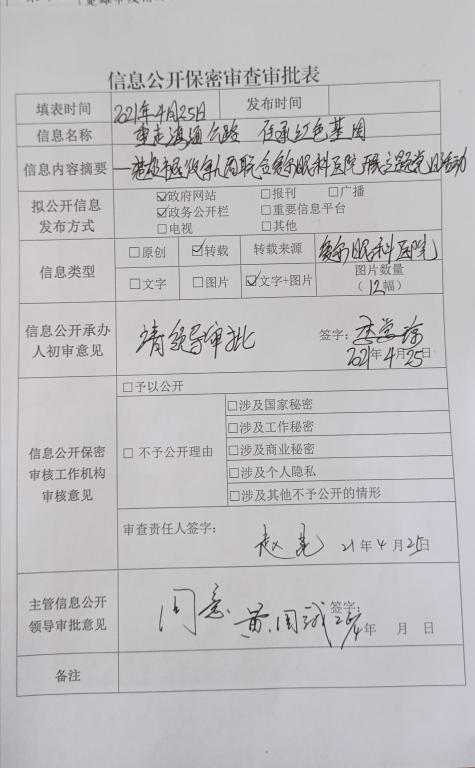 信息公开保密审查审批表
填表时间 2021年4月25日 发布时间
信息名称 重走滇缅公路 传承红色基因
信息内容摘要 眼科医院 主题党日活动
拟公开信息发布方式 ☑政府网站 □报刊 □广播
☑政务公开栏 □重要信息平台
□电视 □其他
信息类型 □原创 ☑转载 转载来源 爱尔眼科医院
□文字 □图片 ☑文字+图片 图片数量(12幅)
信息公开承办人初审意见 请领导审批 签字:
2021年4月25日
信息公开保密审核工作机构审核意见 □予以公开
□ 不予公开理由 □涉及国家秘密
□涉及工作秘密
□涉及商业秘密
□涉及个人隐私
□涉及其他不予公开的情形
审查责任人签字: 21年4月25日
主管信息公开领导审批意见 同意 签字:
年 月 日
备注